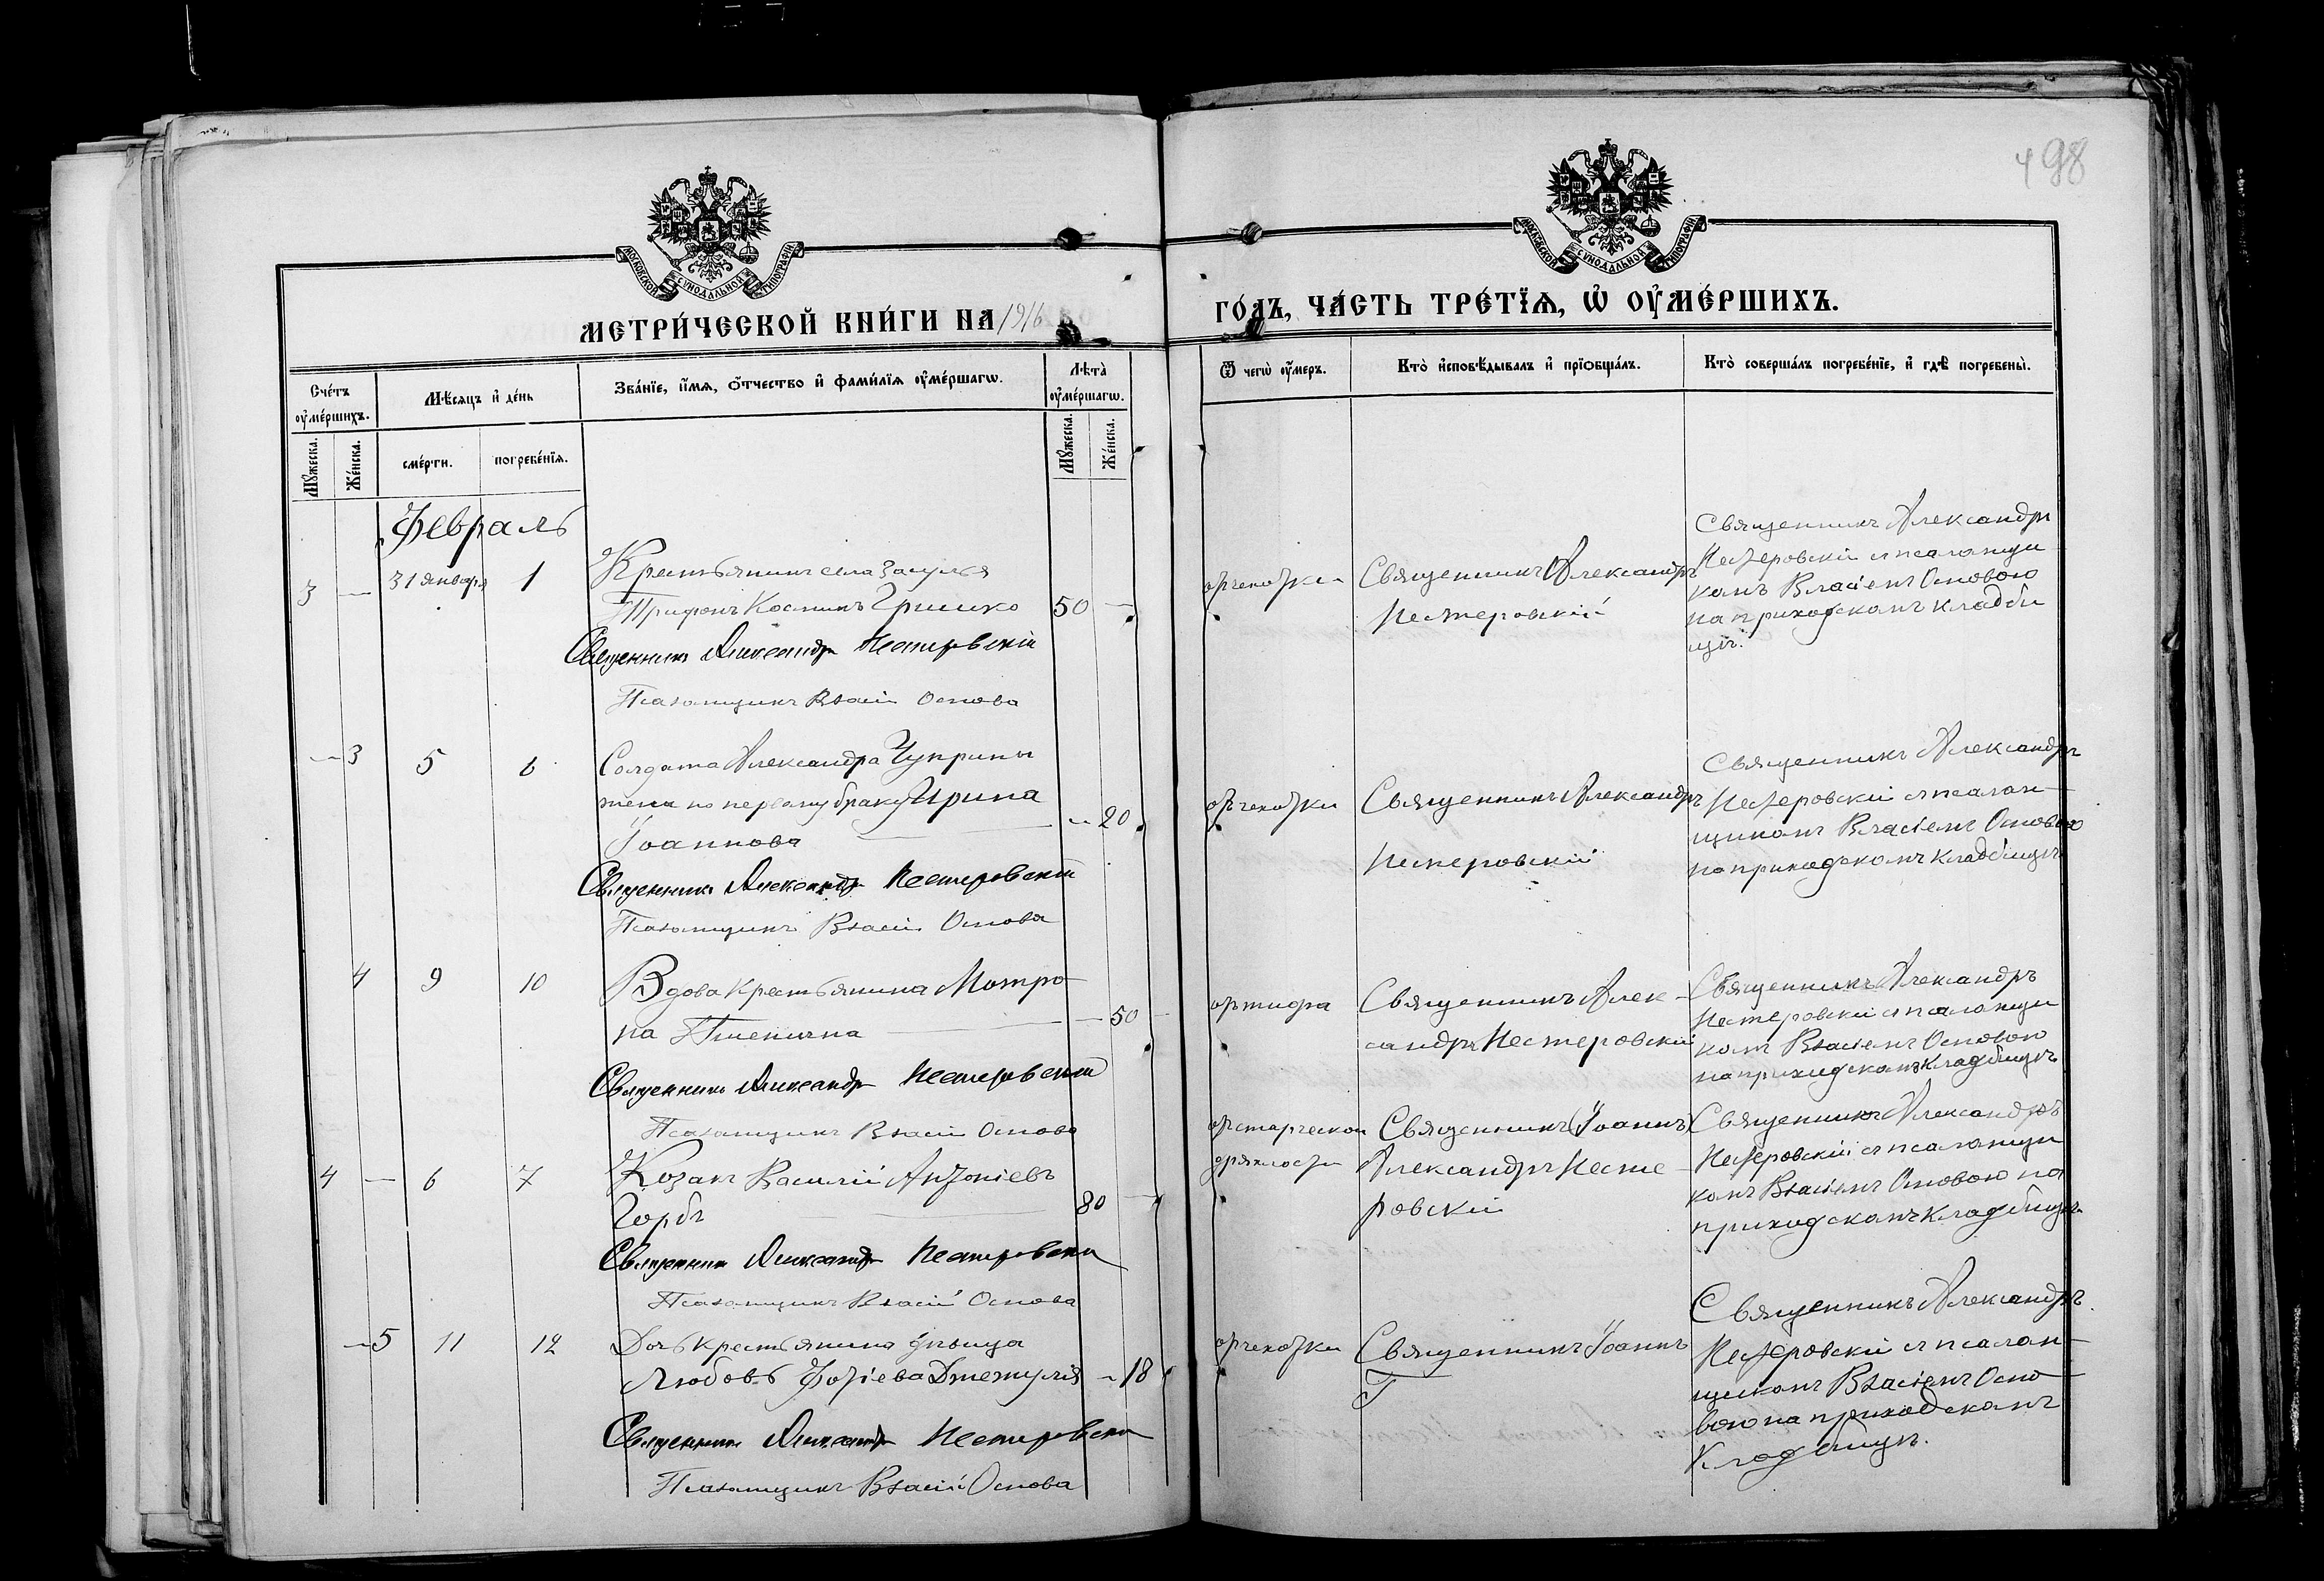 498
МОСКОВСКОЙ СУНОДАЛЬНОЙ ТИПОГРАФІИ
МОСКОВСКОЙ СУНОДАЛЬНОЙ ТИПОГРАФІИ
МЕТРИ́ЧЕСКОЙ КНИ́ГИ НА 1916
ГО́ДЪ, ЧА́СТЬ ТРЕ́ТЇѦ, Ѡ҆ ОУ҆МЕ́РШИХЪ.
Сче́тъ
оу҆ме́ршихъ.
Мѣ́сяцъ и҆ де́нь
Зва́нїе, и҆́мѧ, ѻ҆́тчество и҆ фами́лїѧ оу҆ме́ршагѡ.
Лѣта̀
оу҆ме́ршагѡ.
Мꙋ́жеска.
Же́нска.
сме́рти.
погребе́нїѧ.
Мꙋ́жеска.
Же́нска.
Ѿ чегѡ̀ оу҆́меръ.
Кто̀ и҆сповѣ́дывалъ и҆ прїѻбща́лъ.
Кто̀ соверша́лъ погребе́нїе, и҆ гдѣ̀ погребены̀.
Февраль
3 — 31 января 1
Крестьянинъ села Засулья
Трифонъ Косминъ Гришко 50 —
Священникъ Александръ Нестеровскій
Псаломщикъ Власій Основа
отъ чахотки
Священникъ Александръ
Нестеровскій
Священникъ Александръ
Нестеровскій съ псаломщи
комъ Власіемъ Основою
на приходскомъ кладби
щѣ.
— 3 5 6
Солдата Александра Чуприны
жена по первому браку Ирина
Іоаннова — 20
Священникъ Александръ Нестеровскій
Псаломщикъ Власій Основа
отъ чахотки
Священникъ Александръ
Нестеровскій
Священникъ Александръ
Нестеровскій съ псалом—
щикомъ Власіемъ Основою
на приходскомъ кладбищѣ
4 9 10
Вдова крестьянина Мотро—
на Пшенична — 50
Священникъ Александръ Нестеровскій
Псаломщикъ Власій Основа
отъ тифа
Священникъ Алек—
сандръ Нестеровскій
Священникъ Александръ
Нестеровскій съ псаломщи
комъ Власіемъ Основою
на приходскомъ кладбищѣ
4 — 6 7
Козакъ Василій Антоніевъ
Горбъ 80 —
Священникъ Александръ Нестеровскій
Псаломщикъ Власій Основа
отъ старческой
дряхлости
Священникъ Іоаннъ
Александръ Несте—
ровскій
Священникъ Александръ
Нестеровскій съ псаломщи
комъ Власіемъ Основою на
приходскомъ кладбищѣ
— 5 11 12
Дочь крестьянина
Любовь Фотіева — 18
Священникъ Александръ Нестеровскій
Псаломщикъ Власій Основа
отъ чахотки
Священникъ Іоаннъ
Г
Священникъ Александръ
Нестеровскій съ псалом—
щикомъ Власіемъ Осно—
вою на приходскомъ
Кладбищѣ.